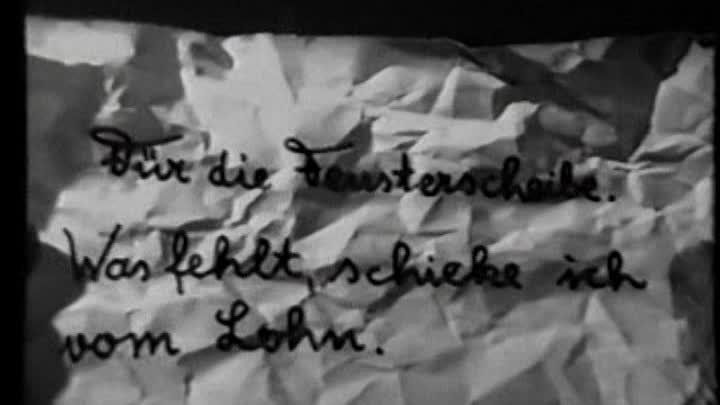 Für die Fensterscheibe.
Was fehlt, schicke ich
vom Lohn.